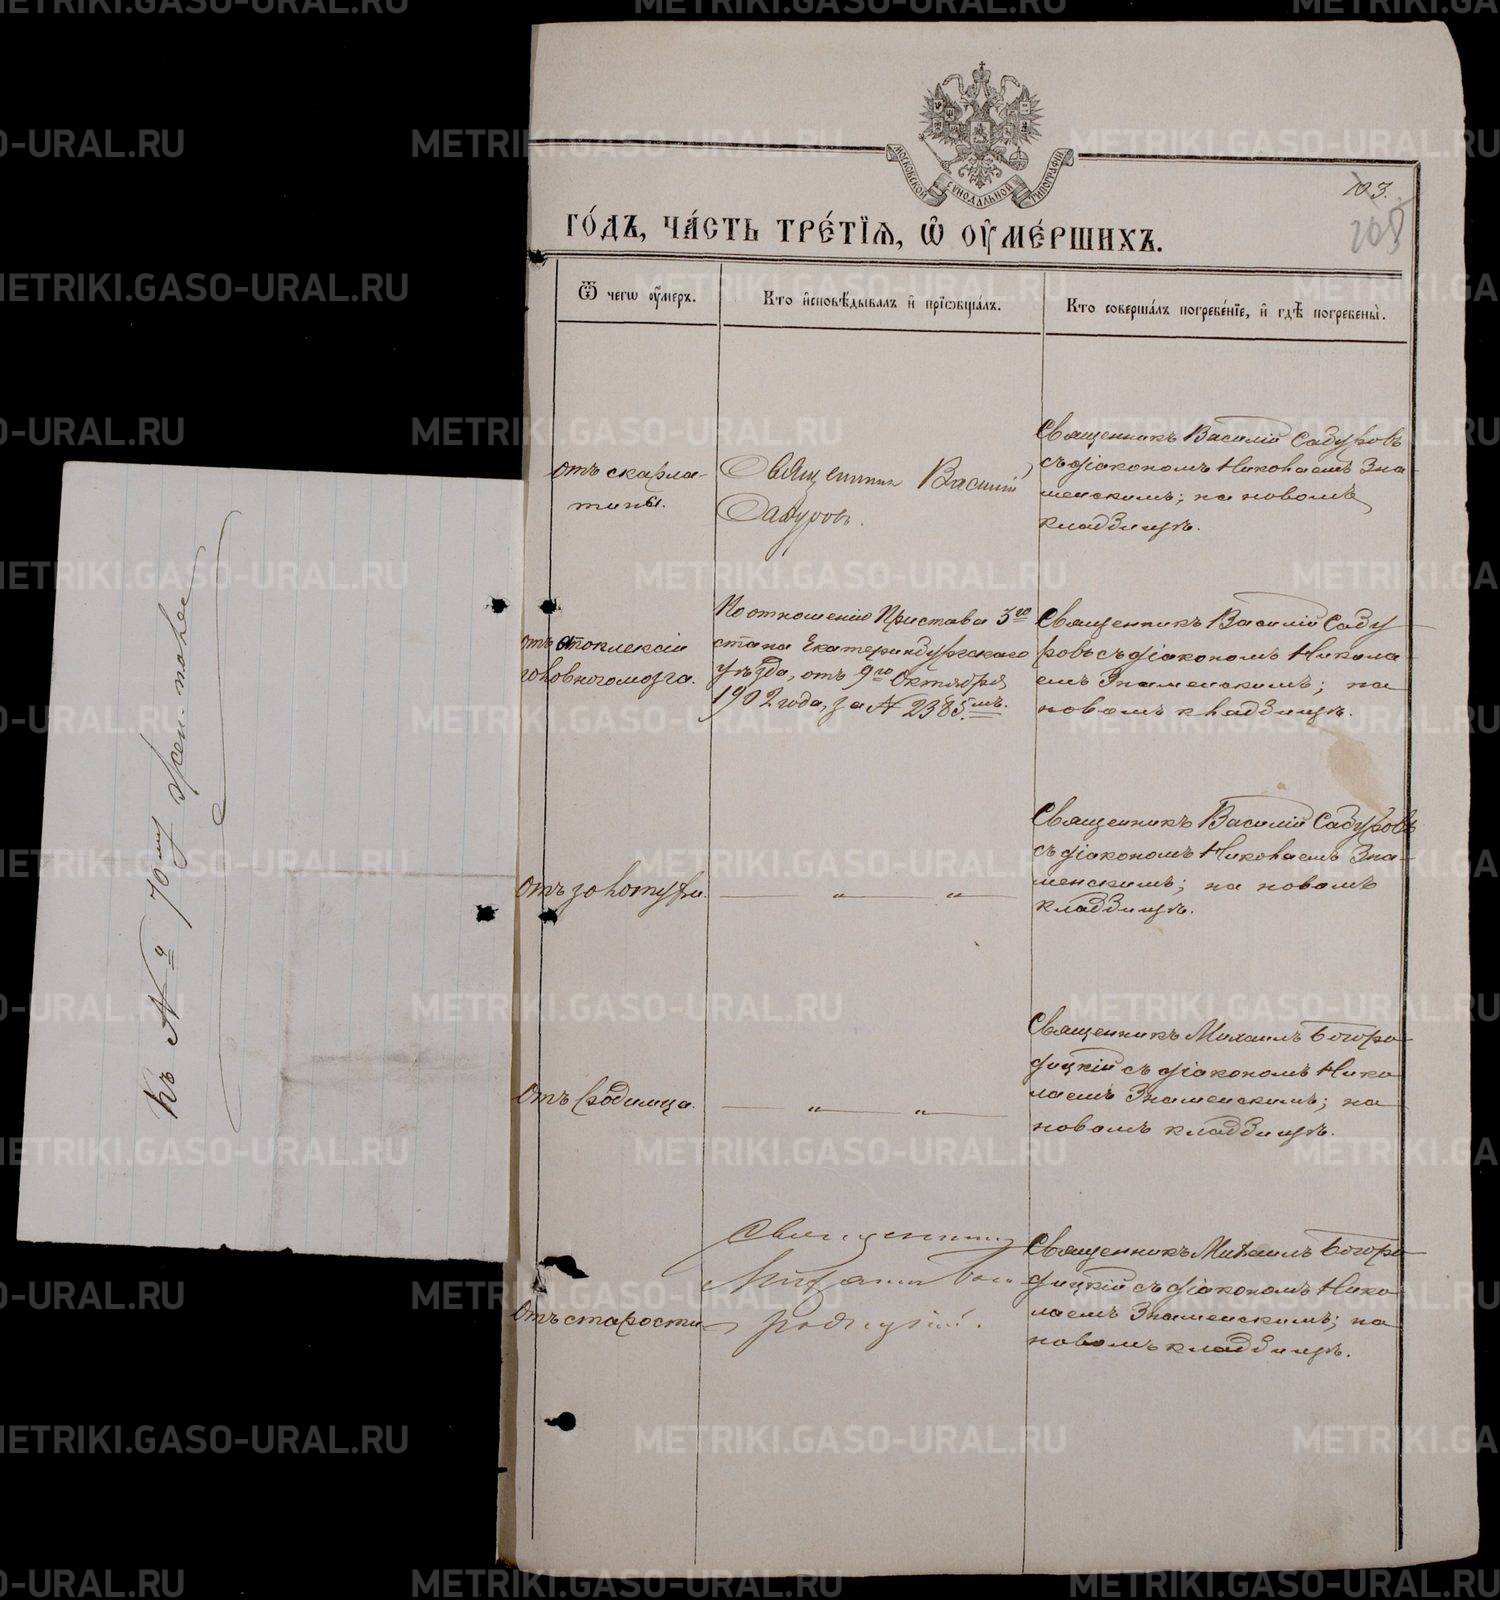 МОСКОВСКОЙ СѴНОДАЛЬНОЙ ТИПОГРАФІИ
103.
105
ГО́ДЪ, ЧА́СТЬ ТРЕ́ТІѦ, Ѡ ОУ҆МЕ́РШИХЪ.
Ѿ чегѡ оу҆́меръ.
Кто и҆сповѣ́дывалъ и҆ прїѡбща́лъ.
Кто соверша́лъ погребе́нїе, и҆ гдѣ̀ погребены̀.
отъ скарла-
тины.
Священник Василій
Сабуровъ.
Священникъ Василій Сабуровъ
съ діакономъ Николаемъ Зна-
менскимъ; на новомъ
кладбищѣ.
отъ апоплексіи
головного мозга.
По отношенію Пристава 3го
стана Екатеринбургскаго
уѣзда, отъ 9го Октября
1902 года, за № 2385мъ.
Священникъ Василій Сабу-
ровъ съ діакономъ Никола-
емъ Знаменскимъ; на
новомъ кладбищѣ.
отъ золотухи.
— „ — „ —
Священникъ Василій Сабуровъ
съ діакономъ Николаемъ Зна-
менскимъ; на новомъ
кладбищѣ.
отъ родимца.
— „ — „ —
Священникъ Михаилъ Богоро-
дицкій съ діакономъ Нико-
лаемъ Знаменскимъ; на
новомъ кладбищѣ.
отъ старости
Священник
Михаилъ Бого-
родицкій.
Священникъ Михаилъ Богоро-
дицкій съ діакономъ Нико-
лаемъ Знаменскимъ; на
новомъ кладбищѣ.
Къ № 70му
METRIKI.GASO-URAL.RU